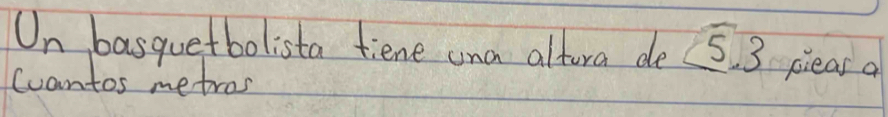 Un basquetbolista tiene una altura de 5.3 piear a
Cuantos metros